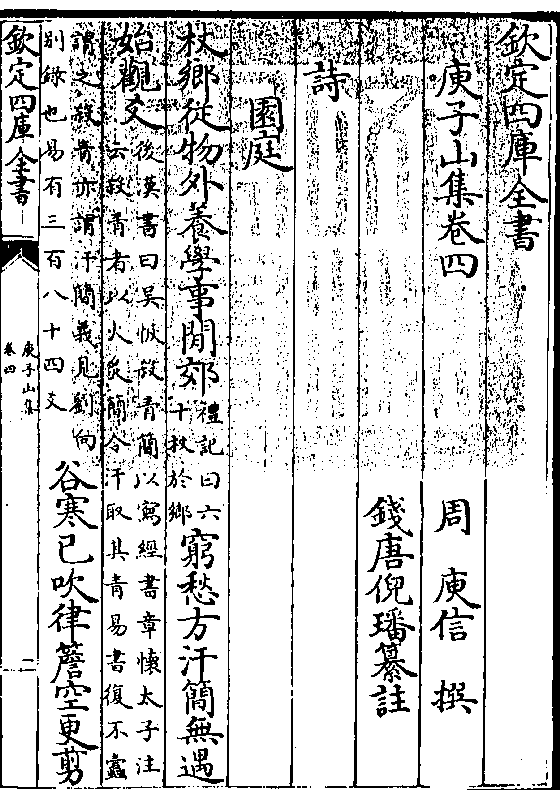 欽定四庫全書
庾子山集卷四
周 庾信 撰
錢唐倪璠纂註
詩
園庭
杖鄉從物外養學事閒郊禮記曰六十杖於鄉窮愁方汗簡無遇
始觀爻後漢書曰吳恢殺青簡以寫經書章懷太子注云殺青者以火炙簡令汗取其青易書復不蠹
謂之殺青亦謂汗簡義見劉向别錄也易有三百八十四爻谷寒已吹律簷空更剪
欽定四庫全書
庾子山集
卷四